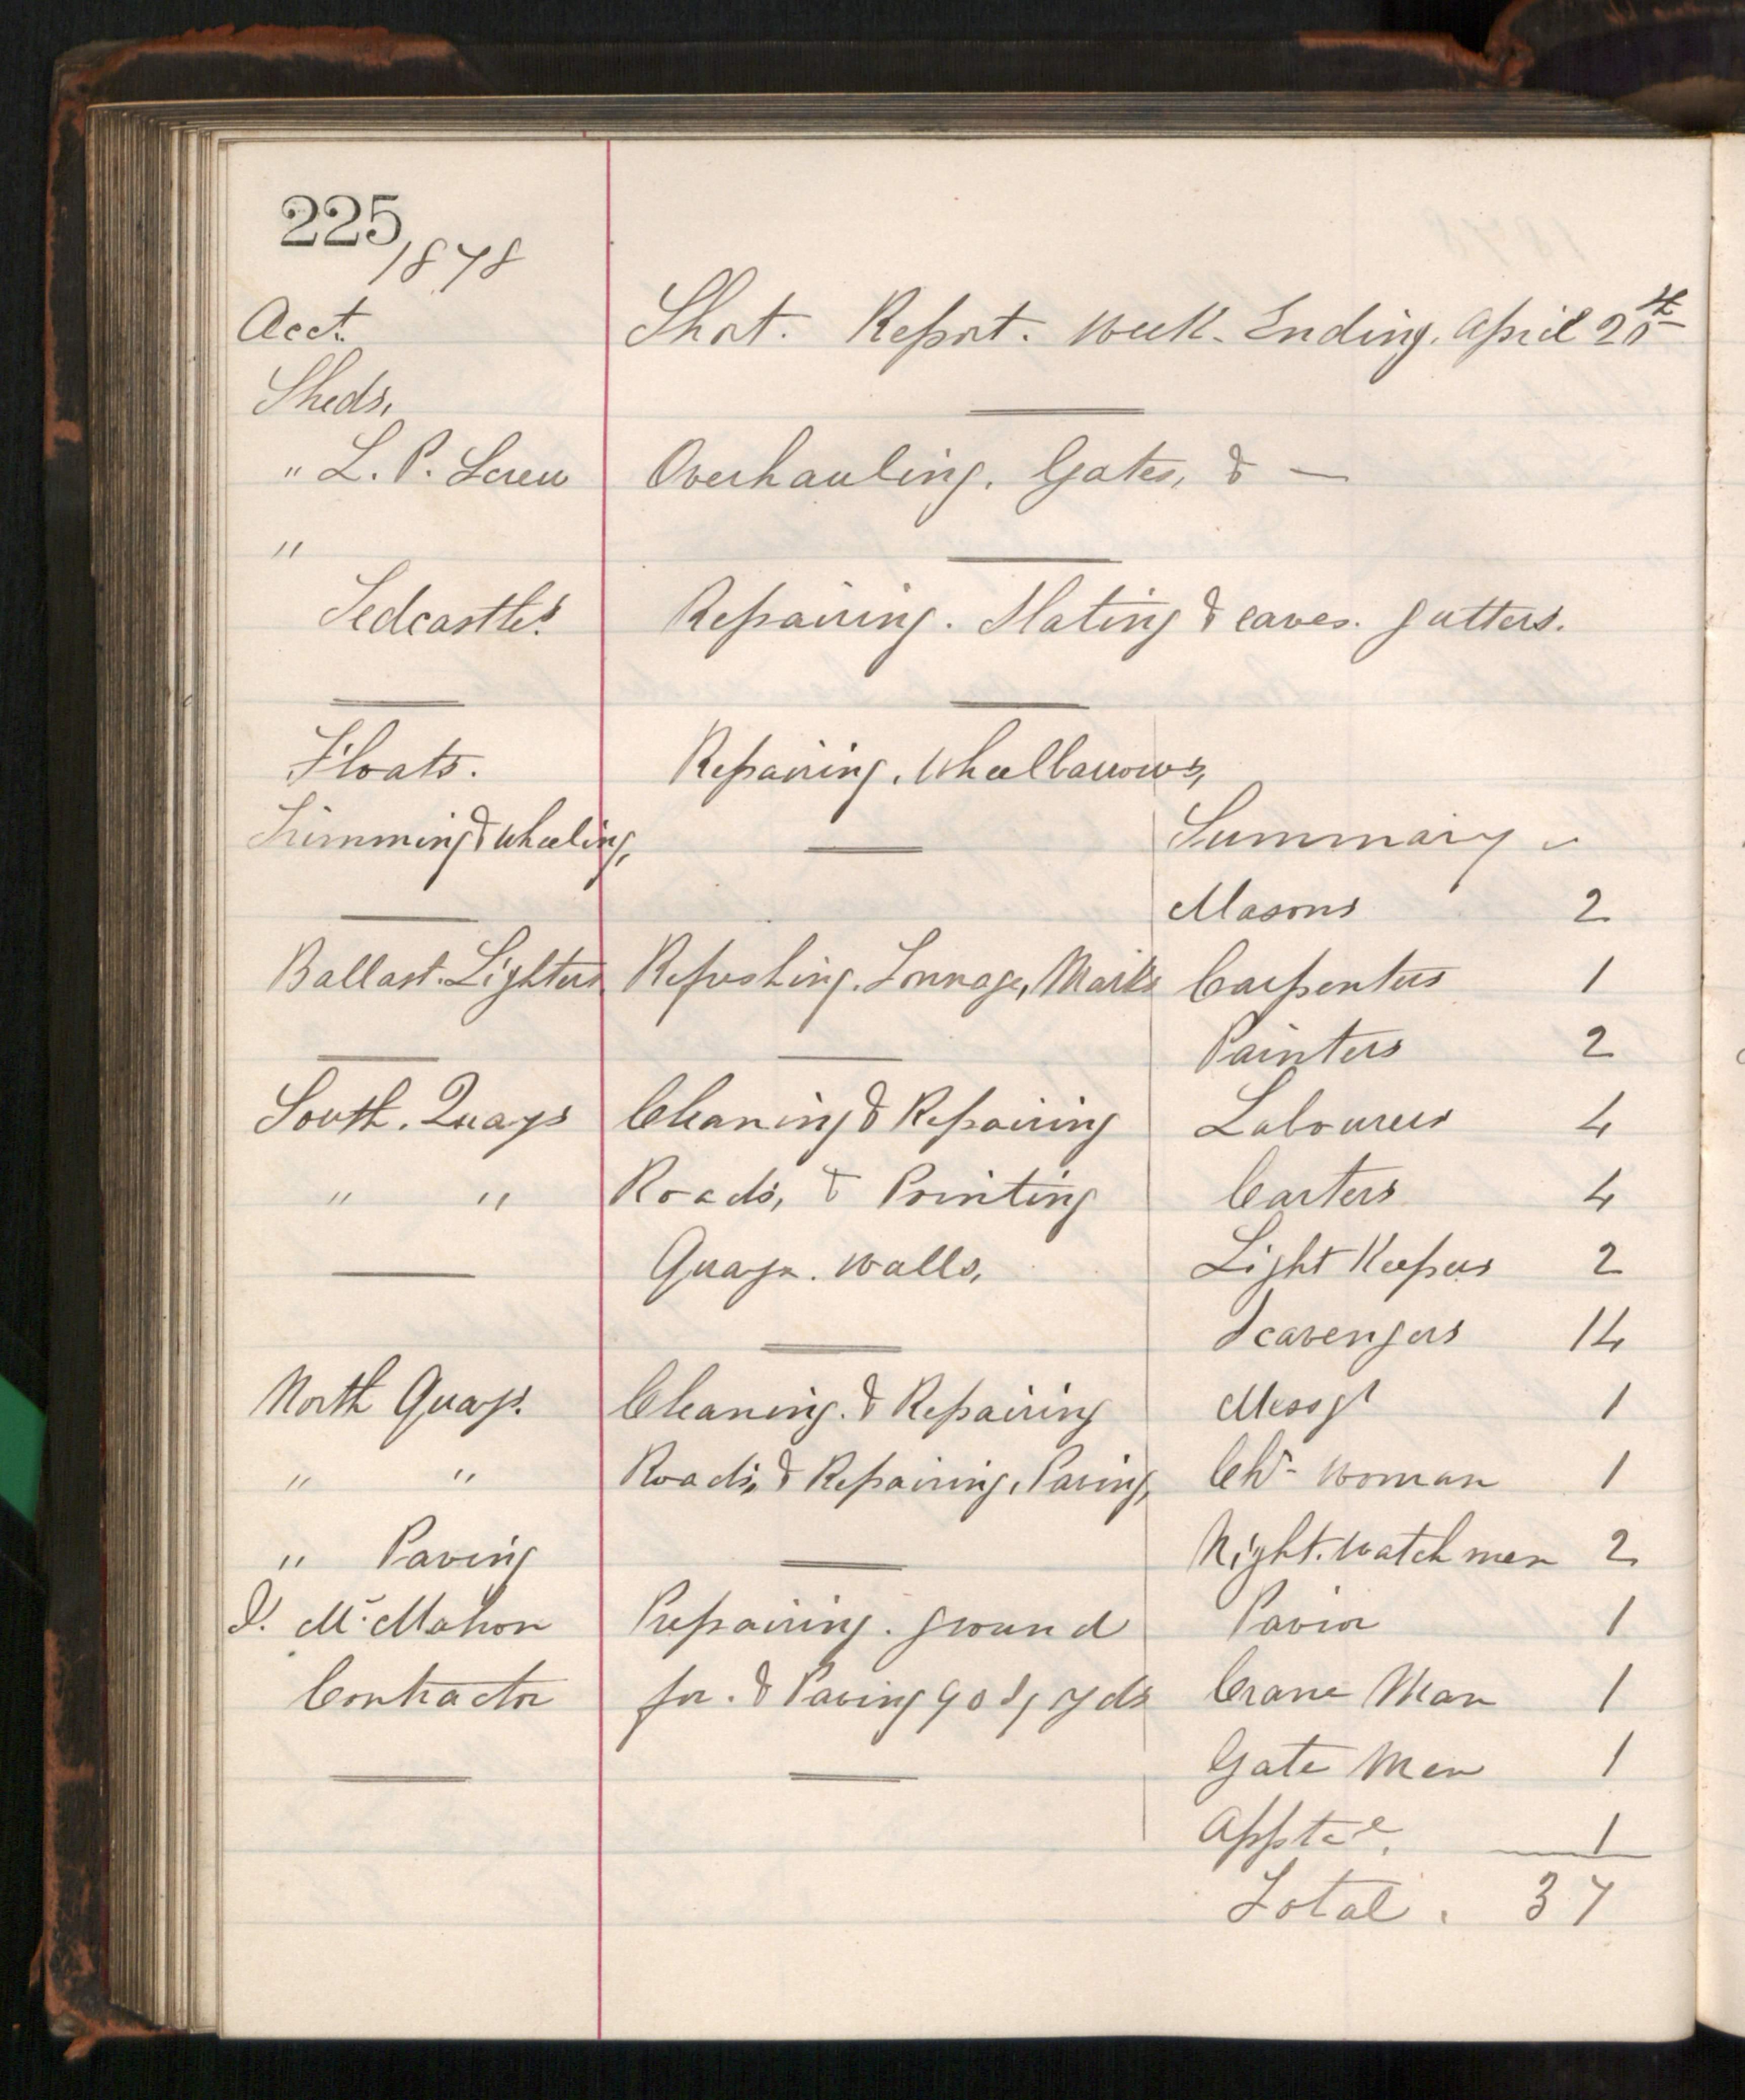 225
1878
Acct. Short. Report. Week. Ending. April 20th
Sheds,
" L. P. Screw Overhauling. Gates, & —
"
Tedcastles. Repairing. Slating & eaves. gutters.
Floats. Repairing. Wheelbarrows,
Trimming & Wheeling, Summary
Masons 2
Ballast. Lighters Refreshing. Tonnage, Marks Carpenters 1
Painters 2
South. Quays Cleaning & Repairing Labourers 4
" " Roads, & Pointing Carters 4
Quays. walls, Light Keepers 2
Scavengers 14
North Quays. Cleaning. & Repairing Messgr 1
" " Roads, & Repairing. Paving, Chr- Woman 1
" Paving Night. Watch men 2
McMahon Preparing. ground Pavior 1
Contractor for. & Paving 90 Sq yds Crane Man 1
Gate Men 1
Appte. 1
Total. 37